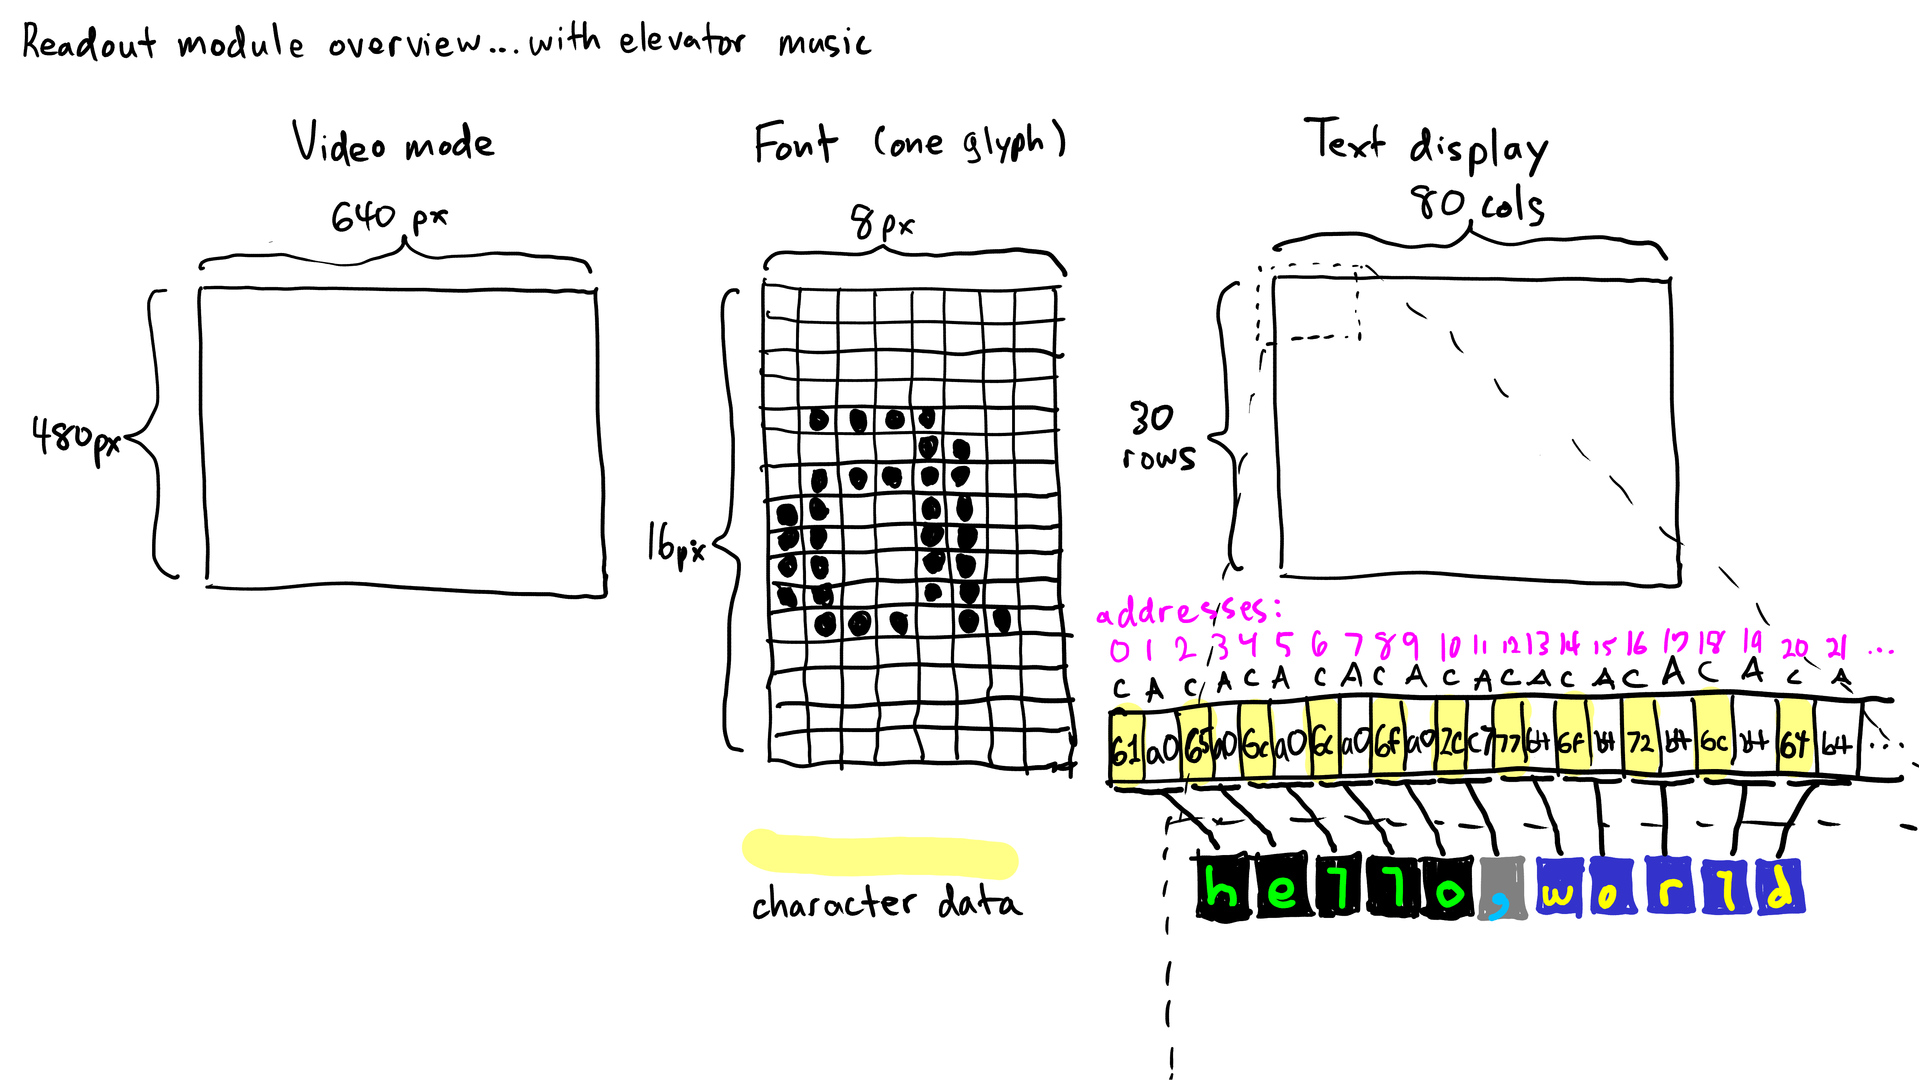 Readout module overview...with elevator music
Video mode
640 px
480px
Font (one glyph)
8px
16px
character data
Text display
80 cols
30 rows
addresses:
0 1 2 3 4 5 6 7 8 9 10 11 12 13 14 15 16 17 18 19 20 21 ...
C A C A C A C A C A C A C A C A C A C A C A
61 a0 65 a0 6c a0 6c a0 6f a0 2c c7 77 b4 6f b4 72 b4 6c b4 64 b4 ...
hello,world